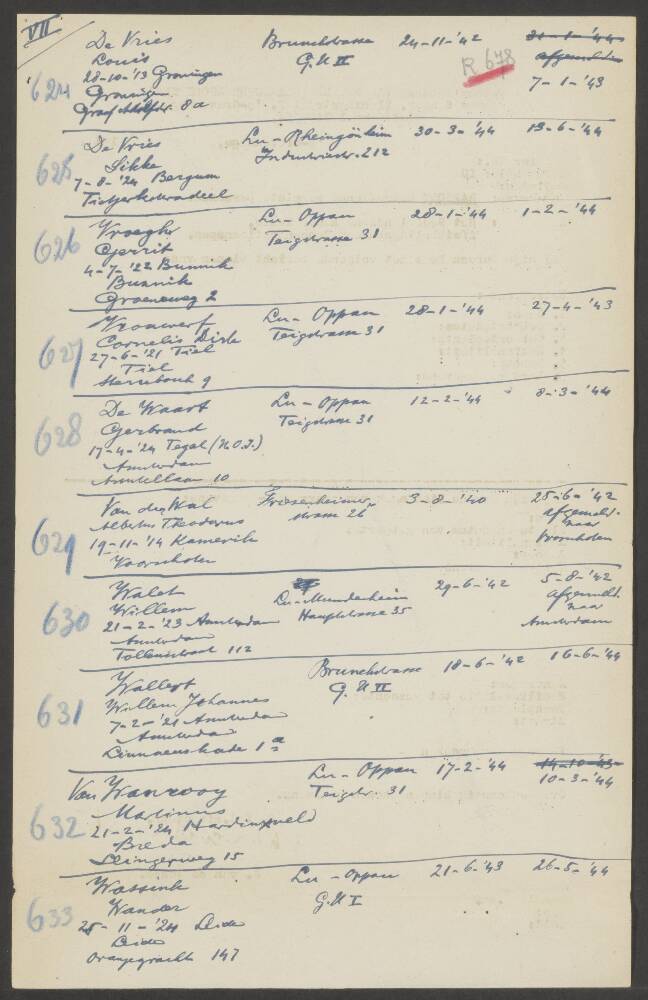 VII
624
De Vries
Louis
28-10-'13 Groningen
Groningen
8a
Brunckstrasse
G.U II
24-11-'42
R 678
7-1-'43
625
De Vries
Sikke
7-8-'24 Bergum
Tietjerksteradeel
Lu-Rheingönheim
212
30-3-'44
13-6-'44
626
Vroegh
Gerrit
4-7-'22 Bunnik
Bunnik
Groeneweg 2
Lu-Oppau
Teigstrasse 31
28-1-'44
1-2-'44
627
Vronwerf
Cornelis Dirk
27-6-'21 Tiel
Tiel
9
Lu-Oppau
Teigstrasse 31
28-1-'44
27-4-'43
628
De Waart
Gerbrand
17-4-'24 Tegal (N.O.I.)
Amsterdam
Amstellaan 10
Lu-Oppau
Teigstrasse 31
12-2-'44
8-3-'44
629
Van der Wal
Albertus Theodorus
19-11-'14 Kamerik
Voorschoten
Friesenheimer-
strasse 26
3-8-'40
25-6-'42
afgemeld.
naar
Voorschoten
630
Walet
Willem
21-2-'23 Amsterdam
Amsterdam
Tollensstraat 112
Lu-Mundenheim
Hauptstrasse 35
29-6-'42
5-8-'42
afgemeld.
naar
Amsterdam
631
Willem Johannes
7-2-'21 Amsterdam
Amsterdam
Linnaeuskade 1a
Brunckstrasse
G.U II
18-6-'42
16-6-'44
632
Van Wanrooy
Martinus
21-2-'24 Hardinxveld
Breda
Slingerweg 15
Lu-Oppau
Teigstr. 31
17-2-'44
14-10-'43
10-3-'44
633
Wassink
Wander
25-11-'24 Leiden
Leiden
Oranjegracht 147
Lu-Oppau
G.U I
21-6-'43
26-5-'44